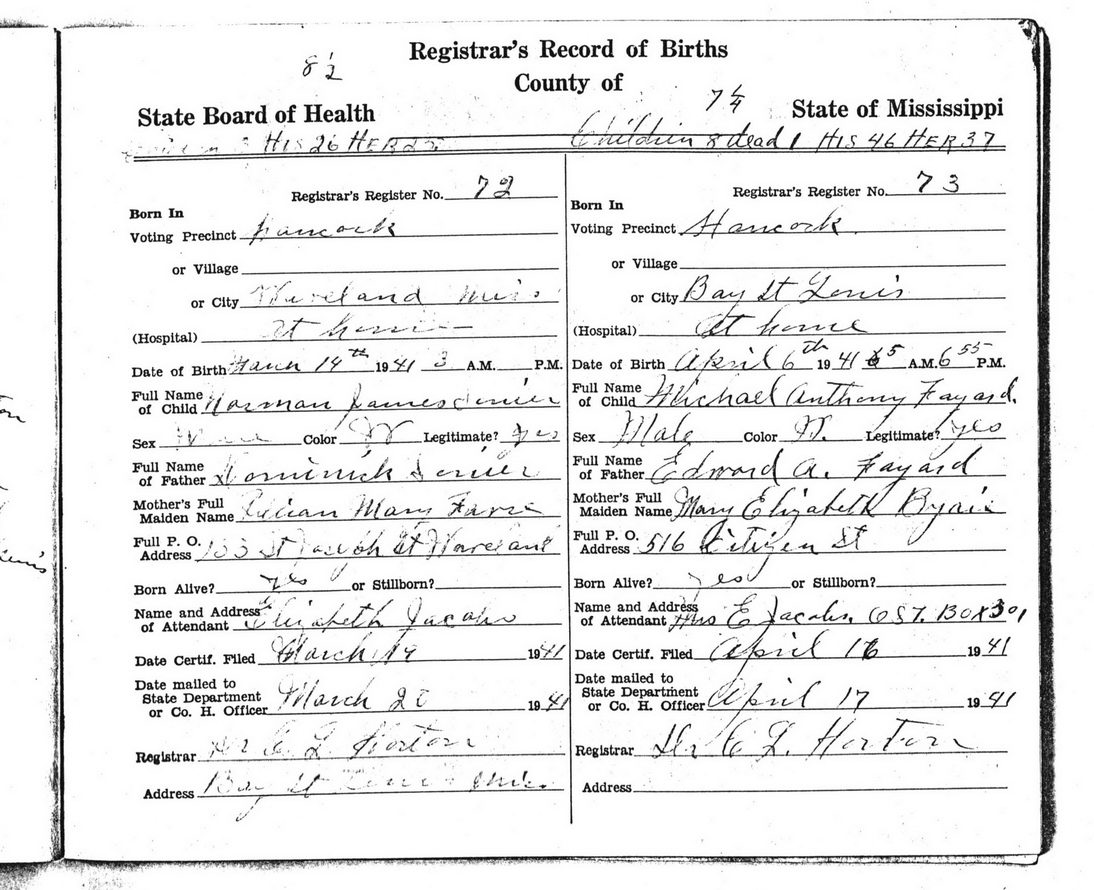 Registrar's Record of Births
8½
County of
7¼
State Board of Health
State of Mississippi
HIS 26 HER 25
Children 8 dead 1 HIS 46 HER 37
Registrar's Register No. 72
Born In
Voting Precinct Hancock
or Village
or City Waveland Miss
(Hospital) at home
Date of Birth March 14th 1941 3 A.M. P.M.
Full Name
of Child Norman James
Sex Color W Legitimate? yes
Full Name
of Father Dominick
Mother's Full
Maiden Name Lilian Mary
Full P. O.
Address 133 St Joseph St Waveland
Born Alive? yes or Stillborn?
Name and Address
of Attendant Elizabeth Jacobs
Date Certif. Filed March 19 1941
Date mailed to
State Department
or Co. H. Officer March 20 1941
Registrar Dr C L Horton
Address Bay St Louis Miss.
Registrar's Register No. 73
Born In
Voting Precinct Hancock
or Village
or City Bay St Louis
(Hospital) At home
Date of Birth April 6th 1941 A.M. 6 55 P.M.
Full Name
of Child Michael Anthony Fayard.
Sex Male Color W. Legitimate? yes
Full Name
of Father Edward A. Fayard
Mother's Full
Maiden Name Mary Elizabeth
Full P. O.
Address 516 Citizen St
Born Alive? yes or Stillborn?
Name and Address
of Attendant Mrs E Jacobs, OST. BOX 301
Date Certif. Filed April 16 1941
Date mailed to
State Department
or Co. H. Officer April 17 1941
Registrar Dr C L. Horton
Address